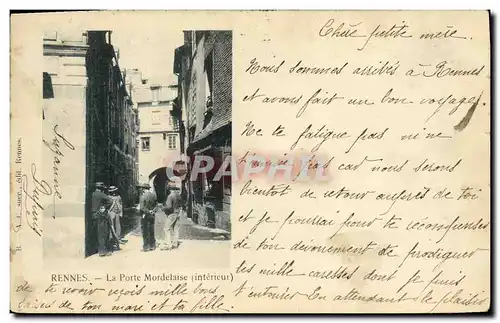 Chère petite mère.
Nous sommes arrivés à Rennes
et avons fait un bon voyage.
Ne te fatigue pas ni ne
pas car nous serons
bientôt de retour auprès de toi
et je pourrai pour te récompenser
de ton dévouement de prodiguer
tes mille caresses dont je puis
t'entourer En attendant le plaisir
de te revoir reçois mille bons
baisers de ton mari et ta fille.
Suzanne
CPARAMA
B. A. F. succ. édit. Rennes.
RENNES. — La Porte Mordelaise (intérieur)